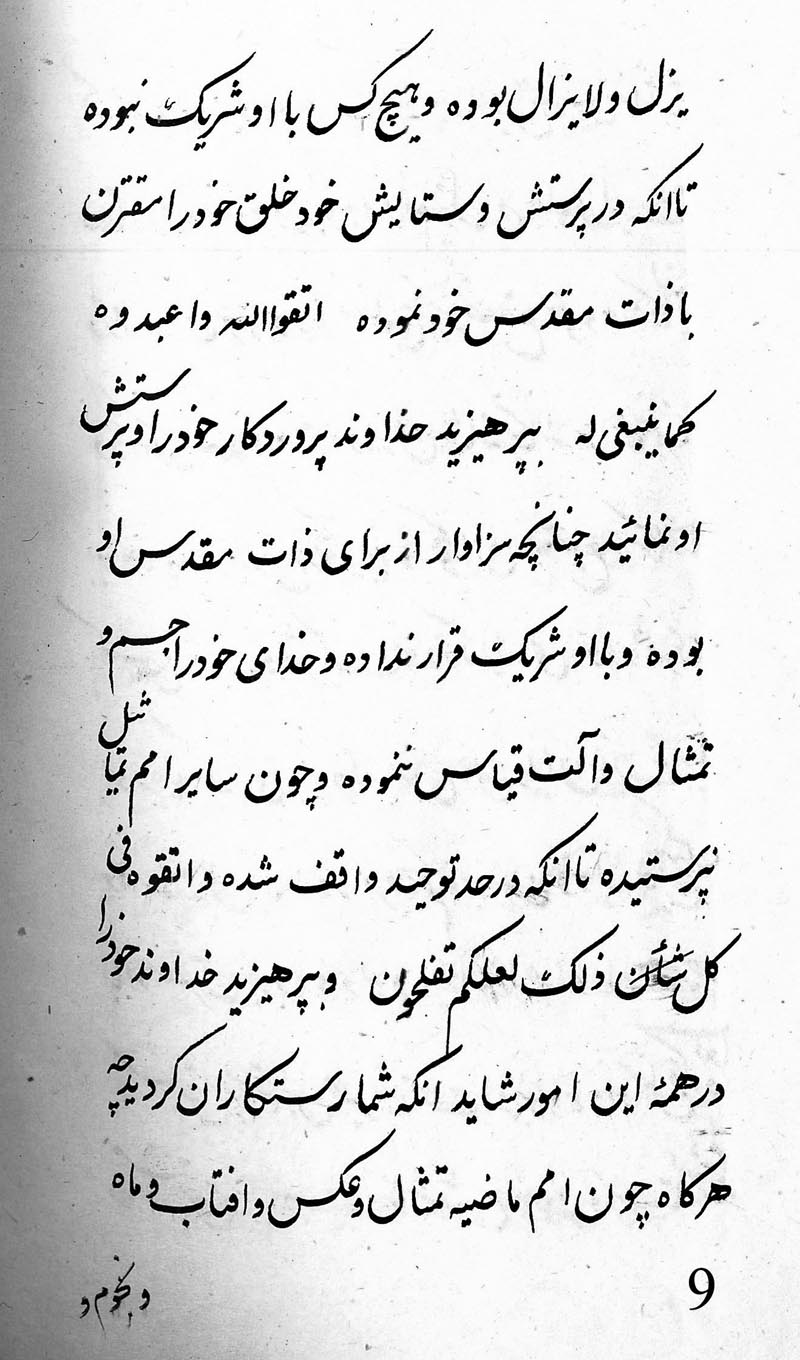 یزل و لایزال بوده و هیچ کس با او شریک نبوده
تا انکه در پرستش و ستایش خود خلق خود را مقترن
با ذات مقدس خود نموده اتقوا الله و اعبدوه
کما ینبغی له بپرهیزید خداوند پروردکار خود را و پرستش
او نمائید چنانچه سزاوار از برای ذات مقدس او
بوده و با او شریک قرار نداده و خدای خود را جسم و
تمثال و آلت قیاس ننموده و چون سایر امم تماثل
نپرستیده تا انکه در حد توحید واقف شده و اتقوه فی
کل شأن ذلک لعلکم تفلحون و بپرهیزید خداوند خود را
در همۀ این امور شاید انکه شما رستکاران کردید چه
هرکاه چون امم ماضیه تمثال و عکس و افتاب و ماه
و نجوم و
9